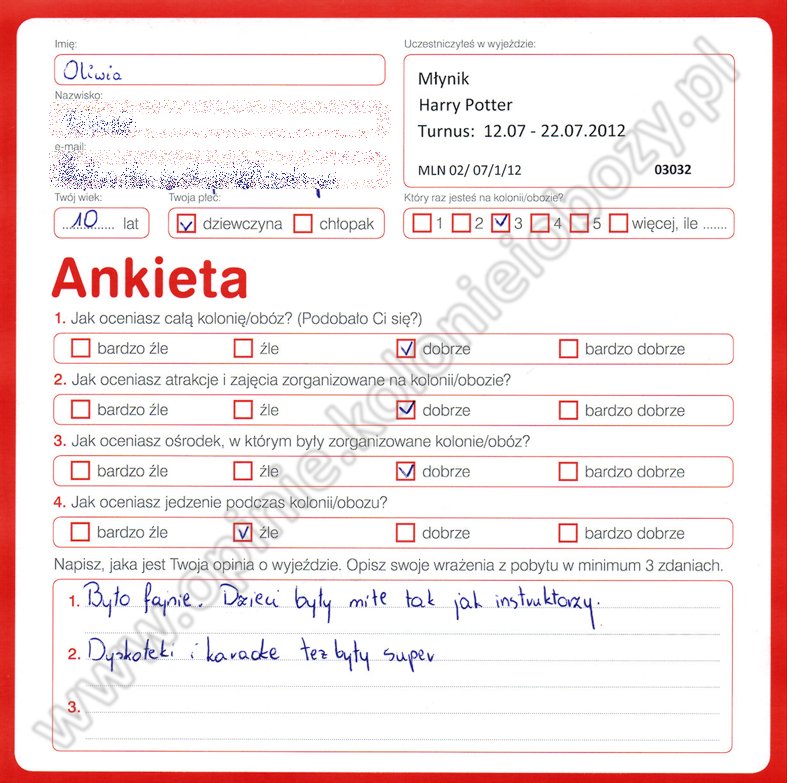 Imię:
Oliwia
Nazwisko:
e-mail:
Twój wiek:
10 lat
Twoja płeć:
dziewczyna chłopak
Uczestniczyłeś w wyjeździe:
Młynik
Harry Potter
Turnus: 12.07 - 22.07.2012
MLN 02/ 07/1/12 03032
Który raz jesteś na kolonii/obozie?
1 2 3 4 5 więcej, ile .......
Ankieta
1. Jak oceniasz całą kolonię/obóz? (Podobało Ci się?)
bardzo źle źle dobrze bardzo dobrze
2. Jak oceniasz atrakcje i zajęcia zorganizowane na kolonii/obozie?
bardzo źle źle dobrze bardzo dobrze
3. Jak oceniasz ośrodek, w którym były zorganizowane kolonie/obóz?
bardzo źle źle dobrze bardzo dobrze
4. Jak oceniasz jedzenie podczas kolonii/obozu?
bardzo źle źle dobrze bardzo dobrze
Napisz, jaka jest Twoja opinia o wyjeździe. Opisz swoje wrażenia z pobytu w minimum 3 zdaniach.
1. Było fajnie. Dzieci były miłe tak jak instruktorzy.
2. Dyskoteki i karaoke też były super
3.
www.opinie.kolonieiobozy.pl